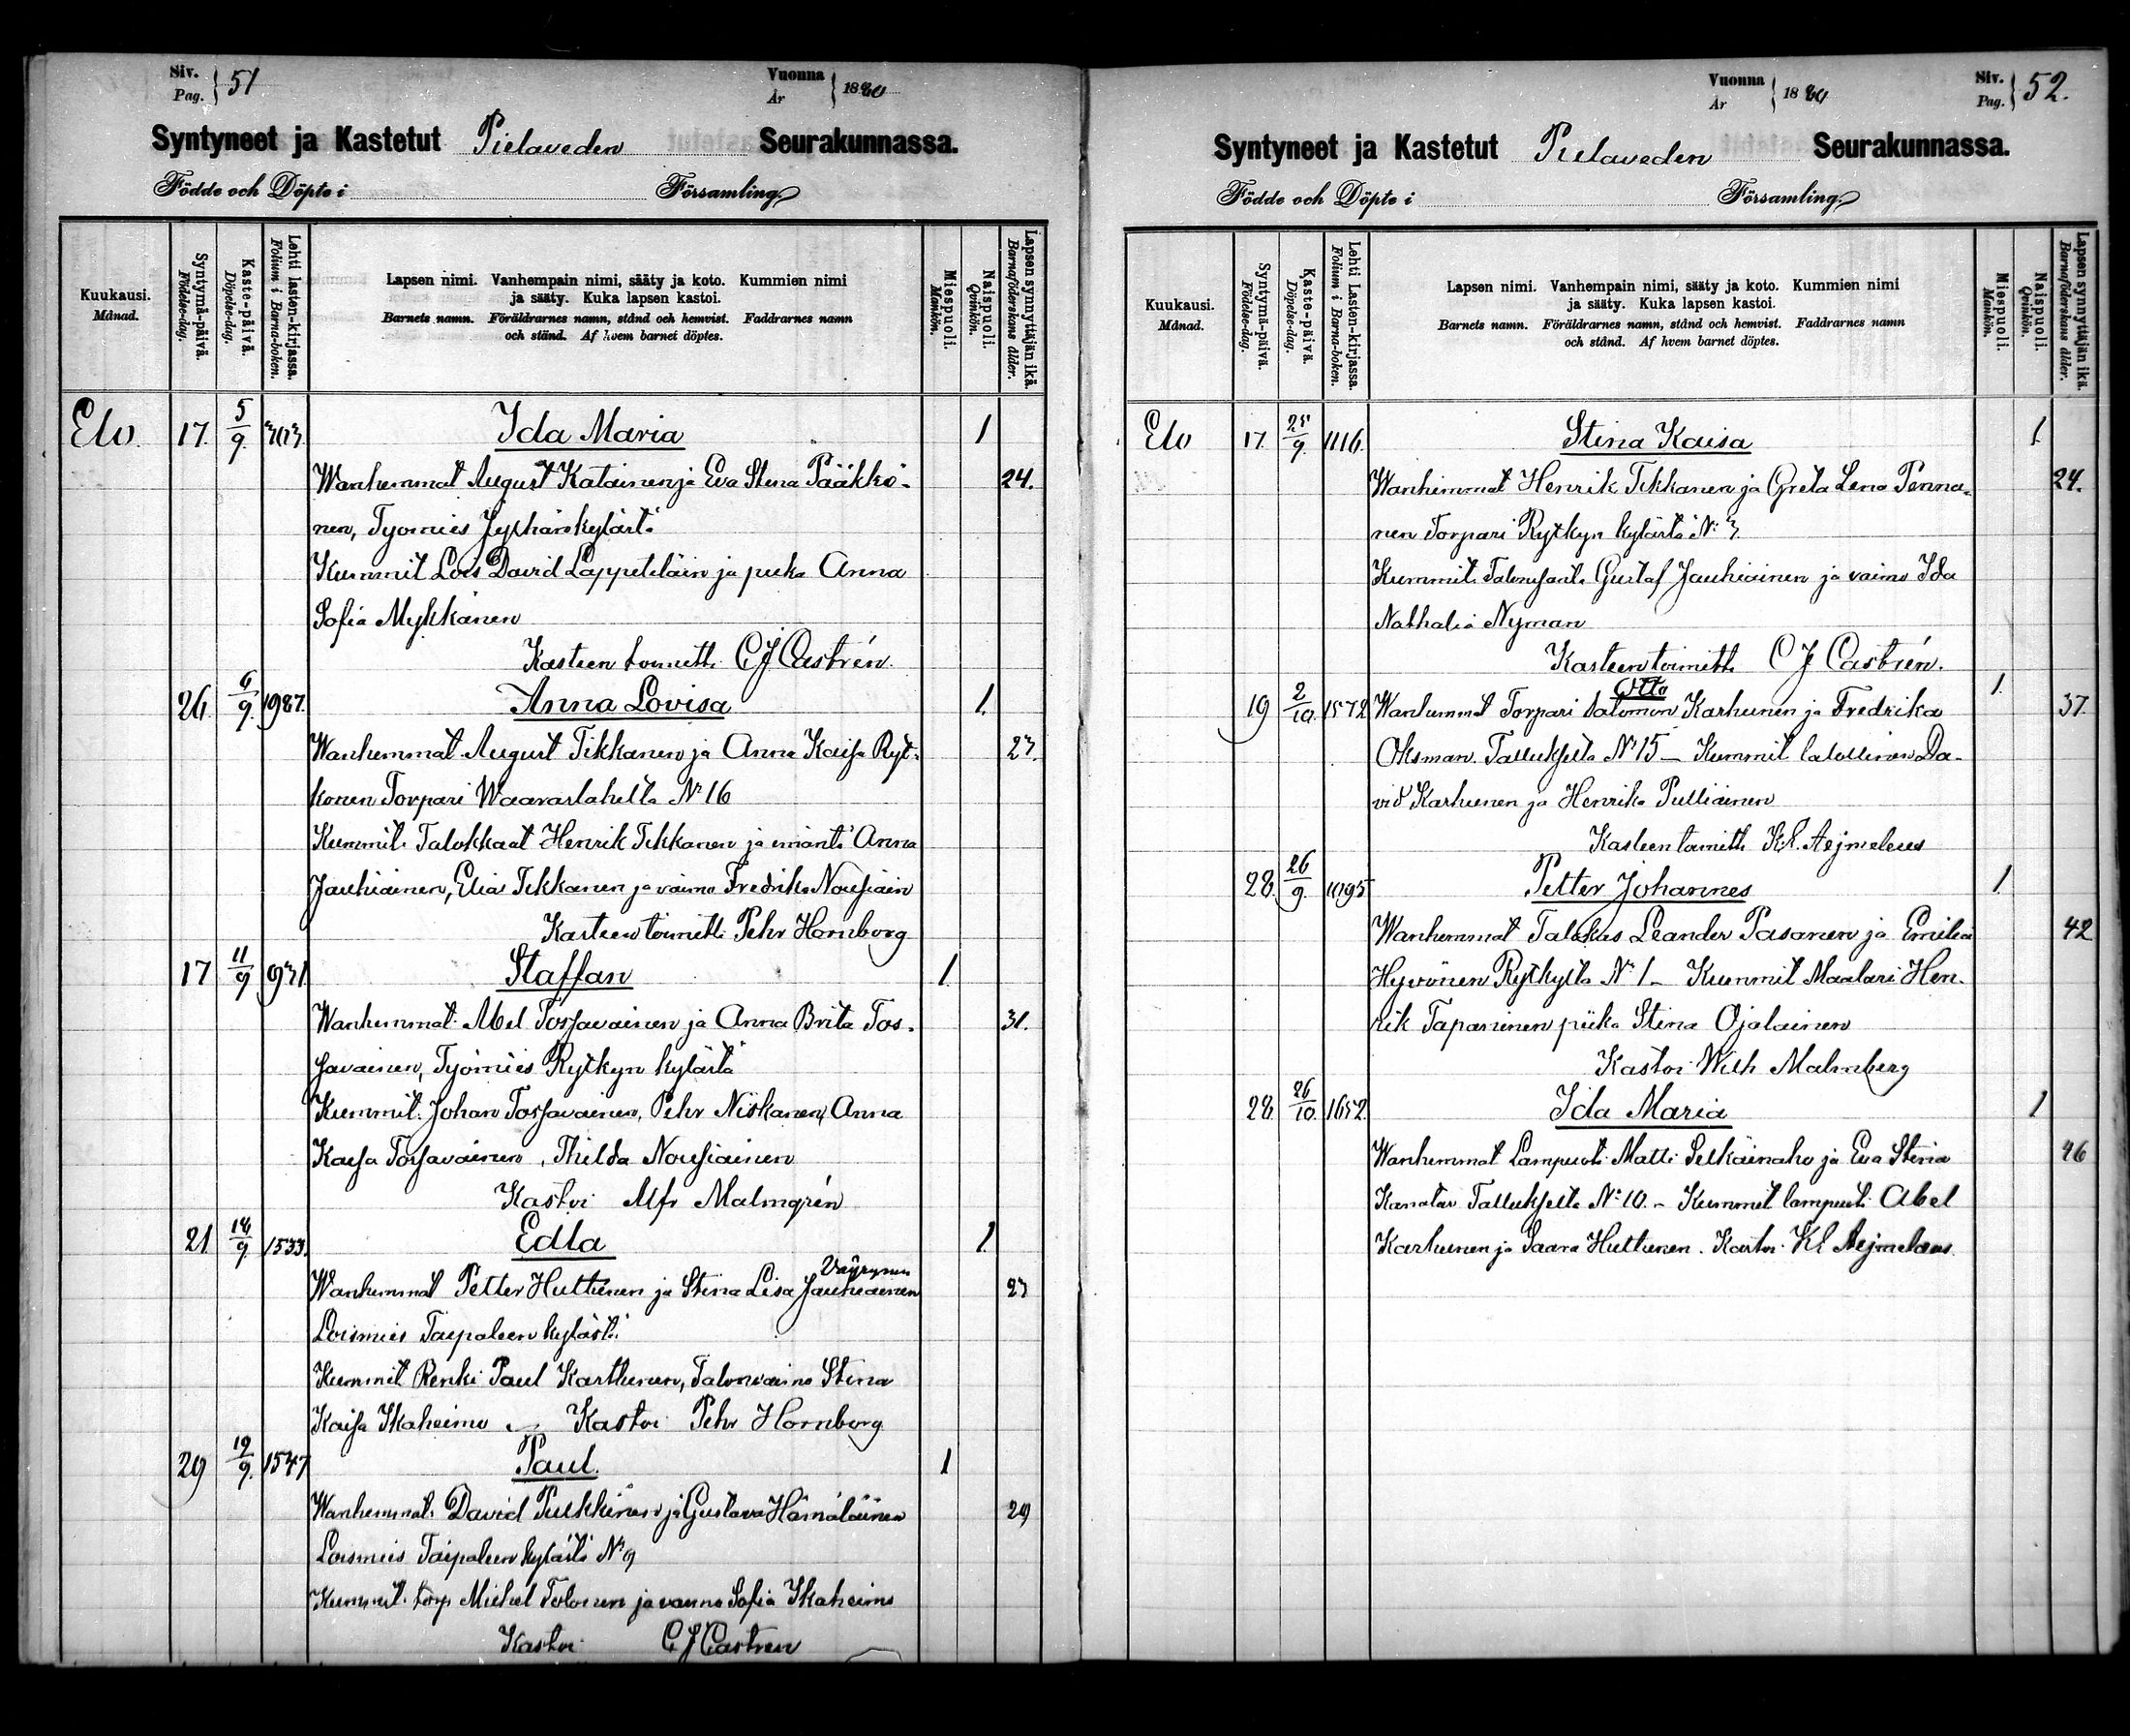 Siv. Pag. } 51
Vuonna År } 1880
Syntyneet ja Kastetut Pielaveden Seurakunnassa.
Födde och Döpte i Församling.
Kuukausi. Månad.
Syntymä-päivä. Födelse-dag.
Kaste-päivä. Döpelse-dag.
Lehti lasten-kirjassa. Folium i Barna-boken.
Lapsen nimi. Vanhempain nimi, sääty ja koto. Kummien nimi
ja sääty. Kuka lapsen kastoi.
Barnets namn. Föräldrarnes namn, stånd och hemvist. Faddrarnes namn
och stånd. Af hvem barnet döptes.
Miespuoli. Mankön.
Naispuoli. Qvinkön.
Lapsen synnyttäjän ikä. Barnaföderskans ålder.
Elo. 17. 5/9. Ida Maria 1
Wanhemmat August Katainen ja Eva Stina Pääkkö- 24.
nen, Työmies Jylhänkylästä
Kummit Lois David Lappeteläin ja piika Anna
Sofia Mykkänen
Kasteen toimitti C J Castrén.
26. 6/9. 1987. Anna Lovisa 1.
Wanhemmat August Tikkanen ja Anna Kaisa Ryt- 23.
könen Torpari Waaraslahelta No 16
Kummit. Talokkaat Henrik Tikkanen ja emäntä Anna
Jauhiainen, Elias Tikkanen ja vaimo Fredrika Nousiain
Kasteen toimitti Pehr Hornborg
17 11/9 931. Staffan 1.
Wanhemmat Abel Tossavainen ja Anna Brita Tos- 31.
savainen, Työmies Rytkyn kylästä
Kummit. Johan Tossavainen, Pehr Niskanen, Anna
Kaisa Tossavainen, Thilda Nousiainen
Kastoi Alfr Malmgrén
21. 14/9. 1533. Edla 1.
Väyrynen
Wanhemmat Petter Huttunen ja Stina Lisa Jauhiainen 23
Loismies Taipaleen kylästä
Kummit Renki Paul Karttunen, Talonvaimo Stina
Kaisa Ikäheimo Kastoi Pehr Hornborg
29 19/9. 1547 Paul. 1
Wanhemmat. David Pulkkinen ja Gustava Hämäläinen 29
Loismies Taipaleen kylästä No 9
Kummit. torp Michel Tolonen ja vaimo Sofia Ikäheimo
Kastoi C J Castren
Vuonna År } 1880
Siv. Pag. } 52.
Syntyneet ja Kastetut Pielaveden Seurakunnassa.
Födde och Döpte i Församling.
Kuukausi. Månad.
Syntymä-päivä. Födelse-dag.
Kaste-päivä. Döpelse-dag.
Lehti Lasten-kirjassa. Folium i Barna-boken.
Lapsen nimi. Vanhempain nimi, sääty ja koto. Kummien nimi
ja sääty. Kuka lapsen kastoi.
Barnets namn. Föräldrarnes namn, stånd och hemvist. Faddrarnes namn
och stånd. Af hvem barnet döptes.
Miespuoli. Mankön.
Naispuoli. Qvinkön.
Lapsen synnyttäjän ikä. Barnaföderskans ålder.
Elo 17. 25/9. 1116. Stina Kaisa 1.
Wanhemmat Henrik Tikkanen ja Greta Lena Penna- 24.
nen Torpari Rytkyn kylästä No 3
Kummit. Gustaf Jauhiainen ja vaimo Ida
Nathalia Nyman
Kasteen toimitti C J Castrén.
Otto 1.
19 2/10. 1572 Wanhemmat Torpari Salomon Karhunen ja Fredrika 37.
Oksman. Tallukselta No 15 – Kummit Da-
vid Karhunen ja Henrika Pulliainen
Kasteen toimitti K. L. Aejmelaeus
28. 26/9. 1095 Petter Johannes 1.
Wanhemmat Talokas Leander Pasanen ja Emilia 42
Hyvönen Rytkyltä No 1 – Kummit Maalari Hen-
rik Tapaninen piika Stina Ojalainen
Kastoi Wilh Malmberg
28. 26/10. 1652. Ida Maria 1
Wanhemmat Lampuoti Matti Selkäinaho ja Eva Stina 46
Tallukselta No 10. – Kummit lampuoti Abel
Karhunen ja Saara Huttunen. Kastoi K L Aejmelaeus.